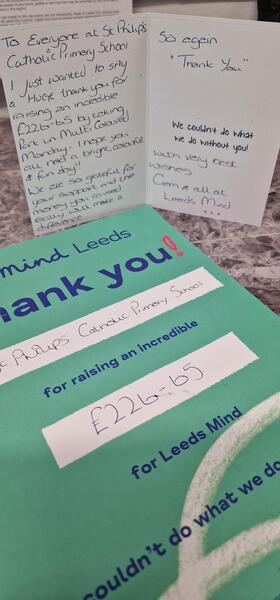 To Everyone at St Philip's
Catholic Primary School.
I Just wanted to say
a HUGE thank you for
raising an incredible
£226-65 by taking
Part in Multi Coloured
Monday. I hope you
all had a bright, colourful
& fun day!!
We are so grateful for
your support and the
money you raised
really will make a
difference
So again
"Thank You"
We couldn't do what
we do without you!
With very best
wishes
Gem & all at
Leeds Mind
mind Leeds
hank you!
St Philips Catholic Primary School
for raising an incredible
£226-65
for Leeds Mind
couldn't do what we do